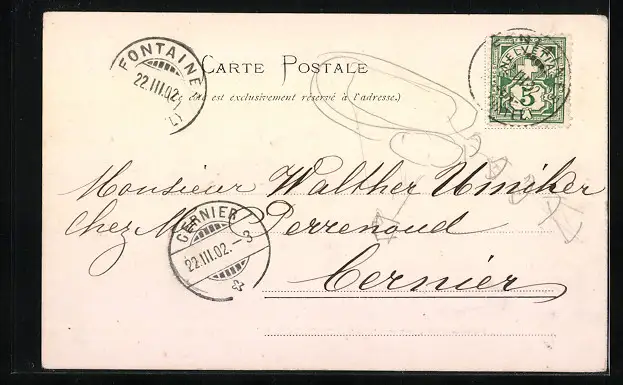 FONTAINE
22.III.02.
CARTE POSTALE
(Ce côté est exclusivement réservé à l'adresse.)
HELVETIA
5
Monsieur Walther Umiker
chez Mr Perrenoud
CERNIER
22.III.02.-3
Cernier